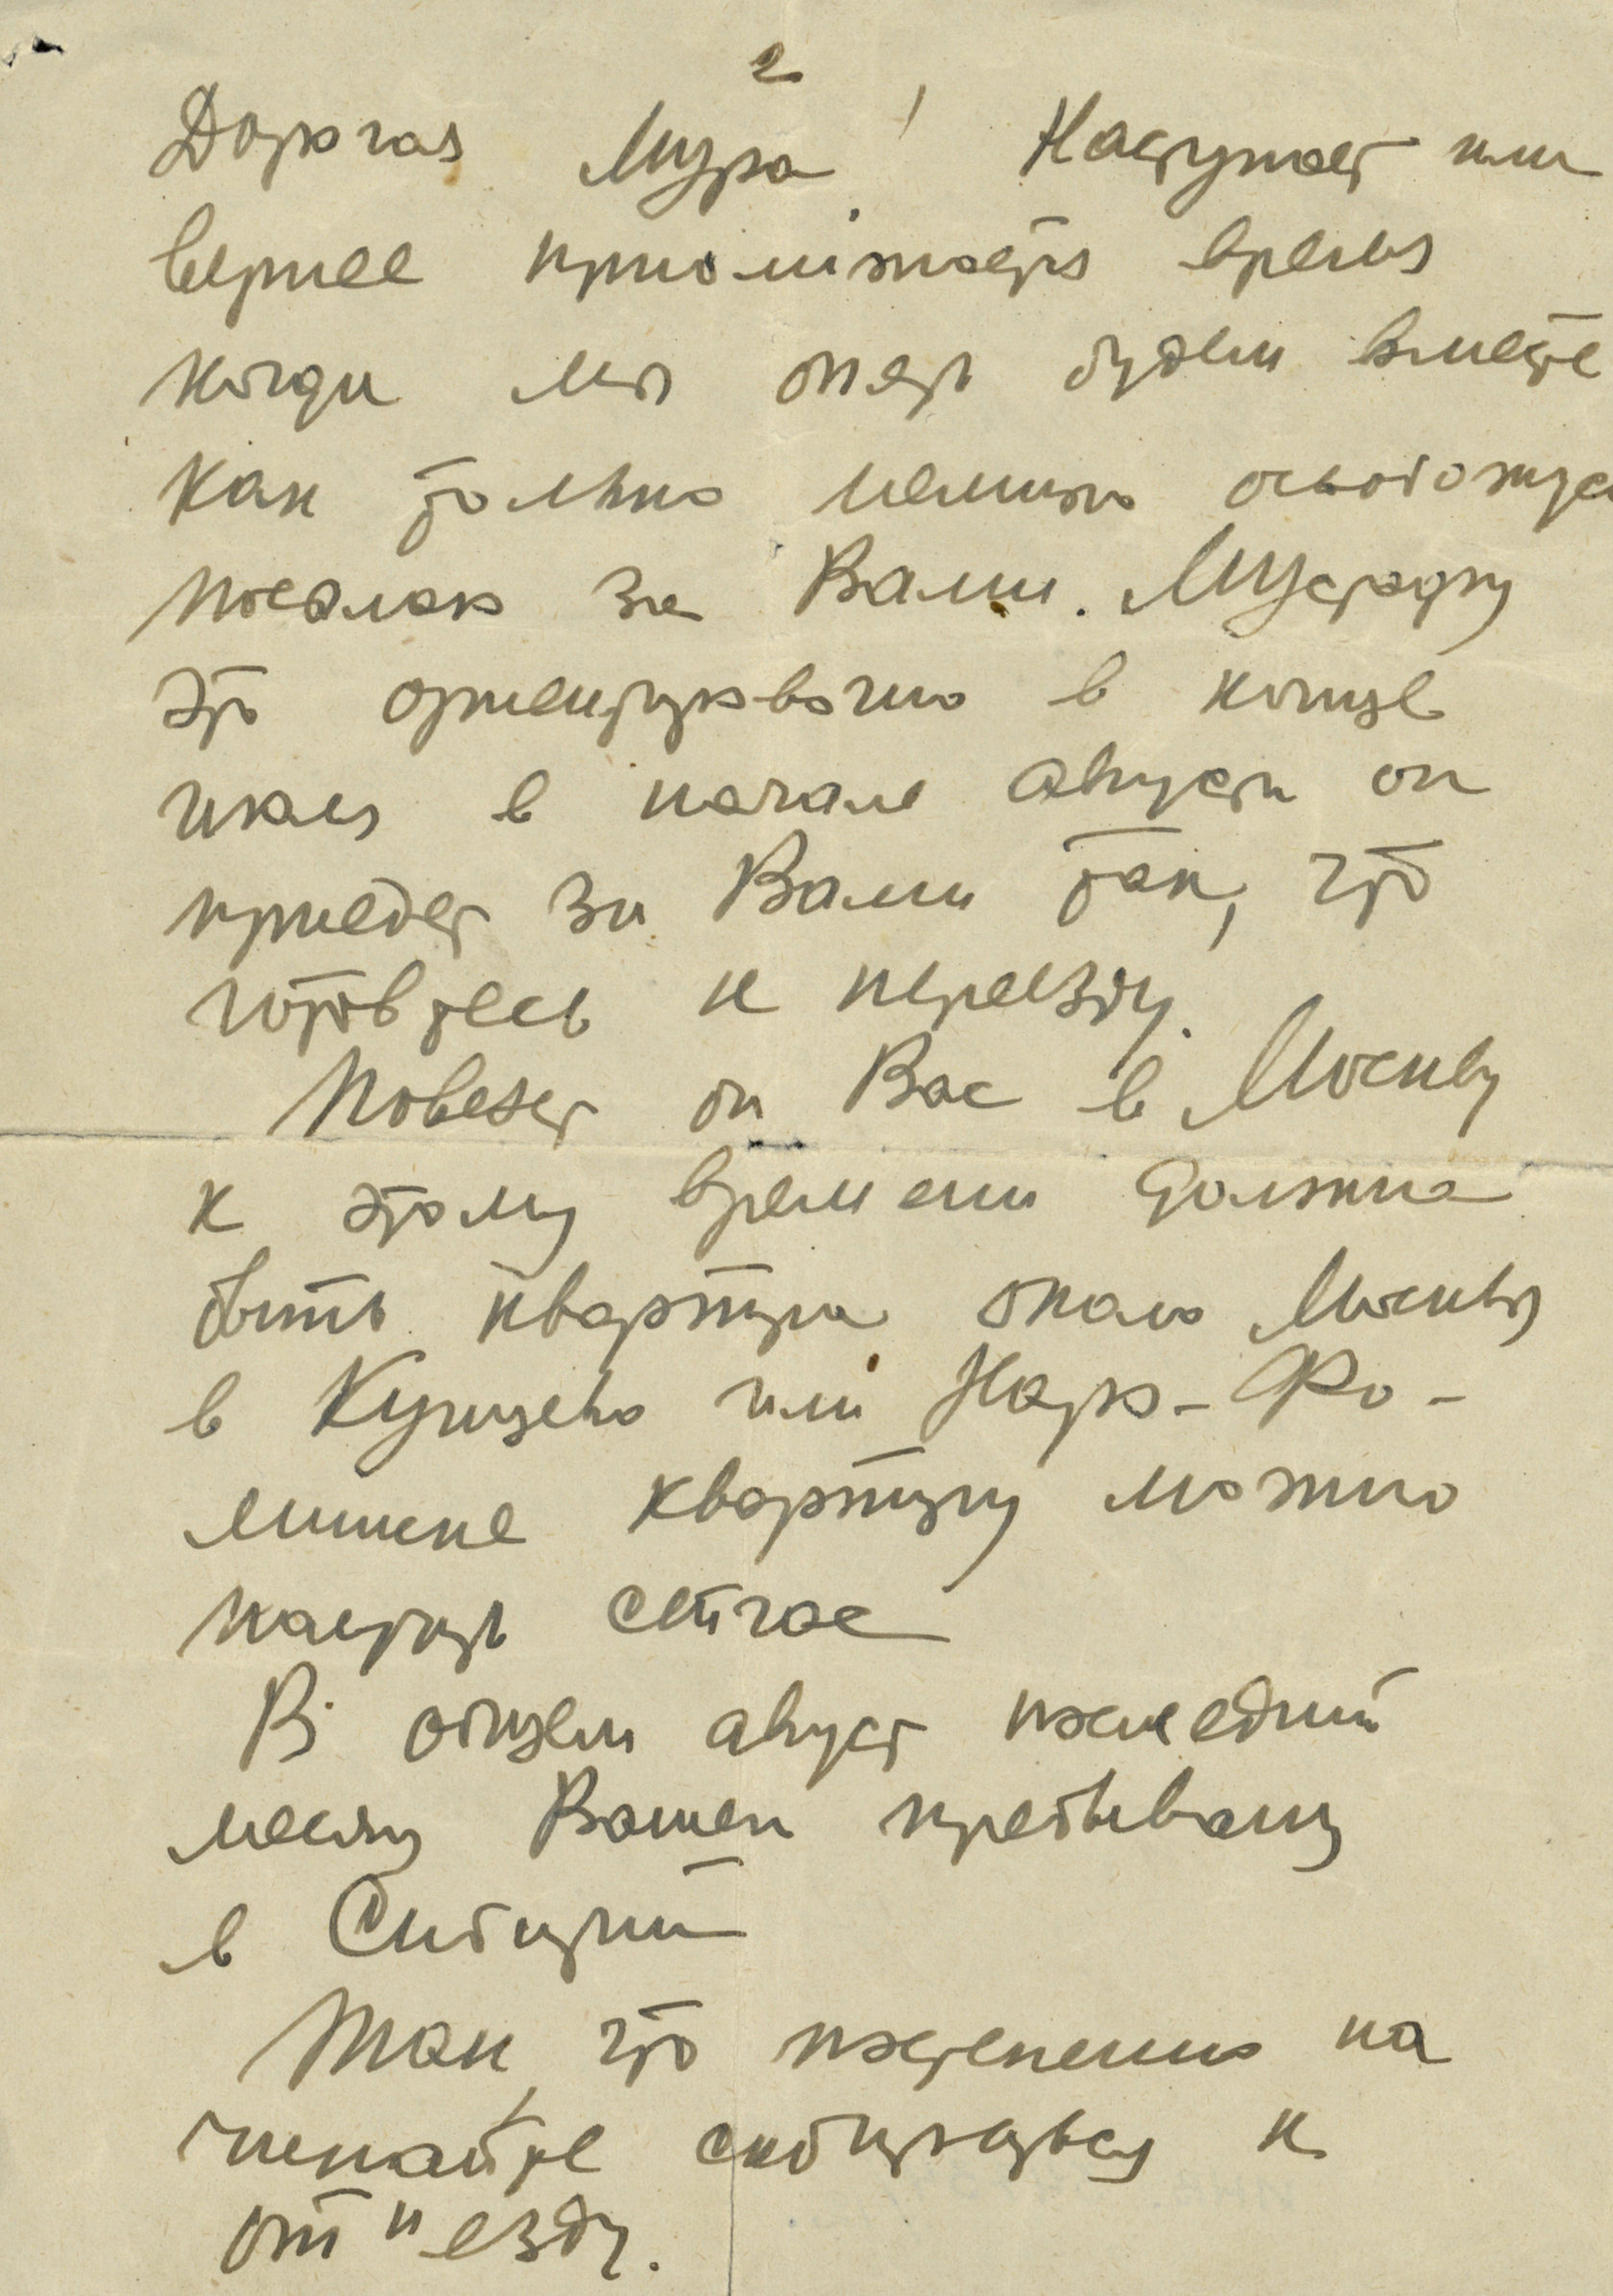 2
Дорогая Мура! Наступает или
вернее приближается время
когда мы опять будем вместе
Как только немного освобожусь
пошлю за Вами.
это ориентировочно в конце
июля в начале августа он
приедет за Вами так, что
готовьтесь к переезду.
Повезет он Вас в Москву
к этому времени должна
быть квартира около Москвы
в Кунцево или Наро-Фо-
минске квартиру можно
сейчас
В общем август последний
месяц Вашего пребывания
в Сибири
Так, что постепенно на
чинайте собираться к
от"езду.